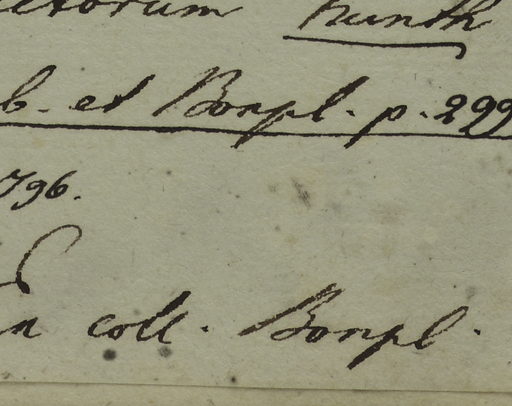 etorum Kunth
b. et Bonpl. p. 299
796.
n coll. Bonpl.